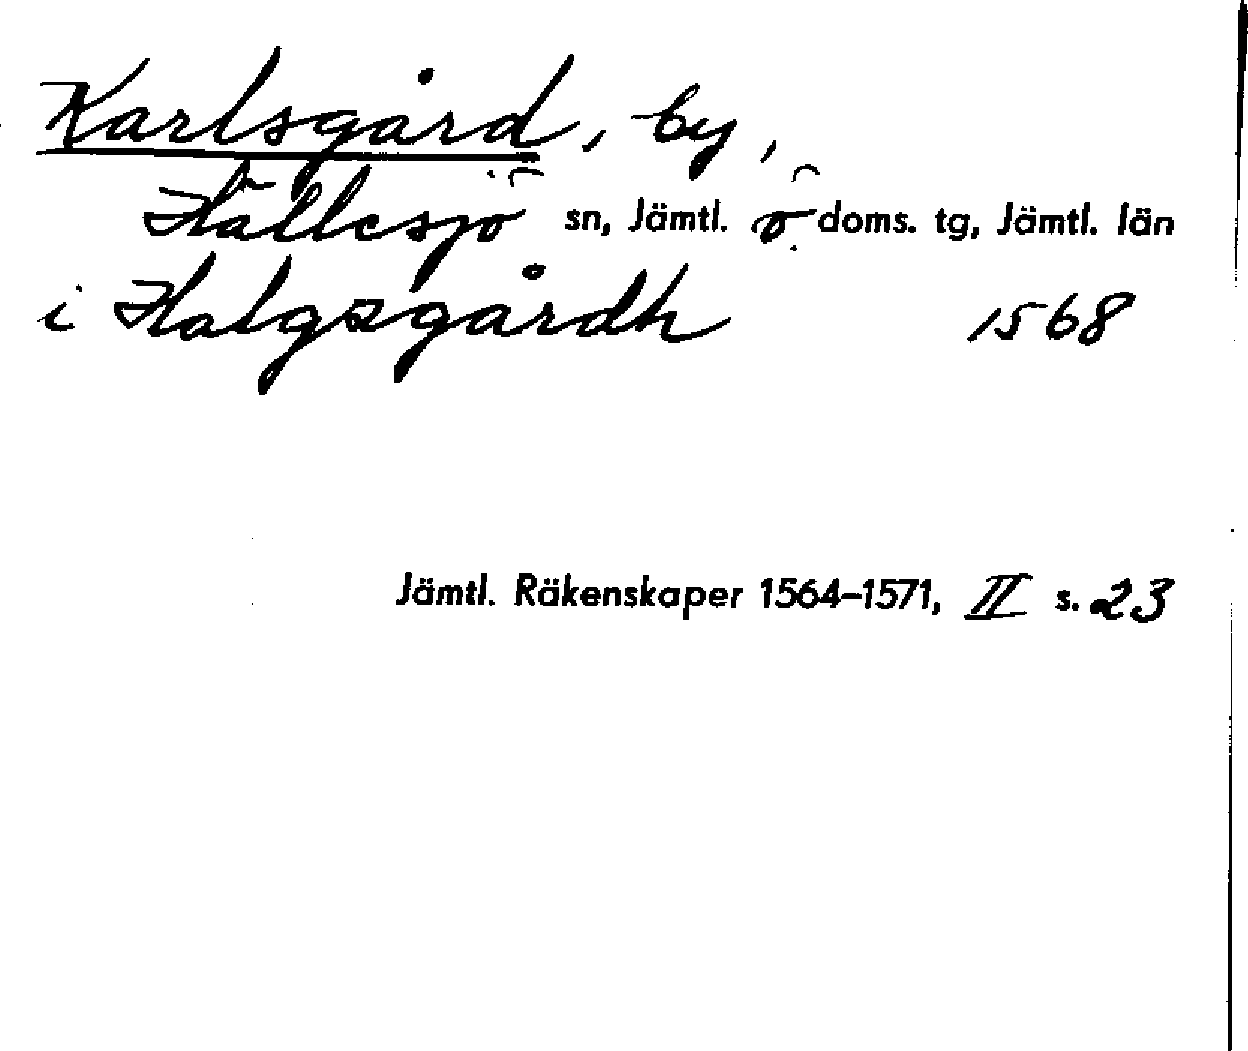 Karlsgård, by,
Hällesjö sn, Jämtl. ö doms. tg, Jämtl. län
i Halgsgårdh 1568
Jämtl. Räkenskaper 1564–1571, II s. 23